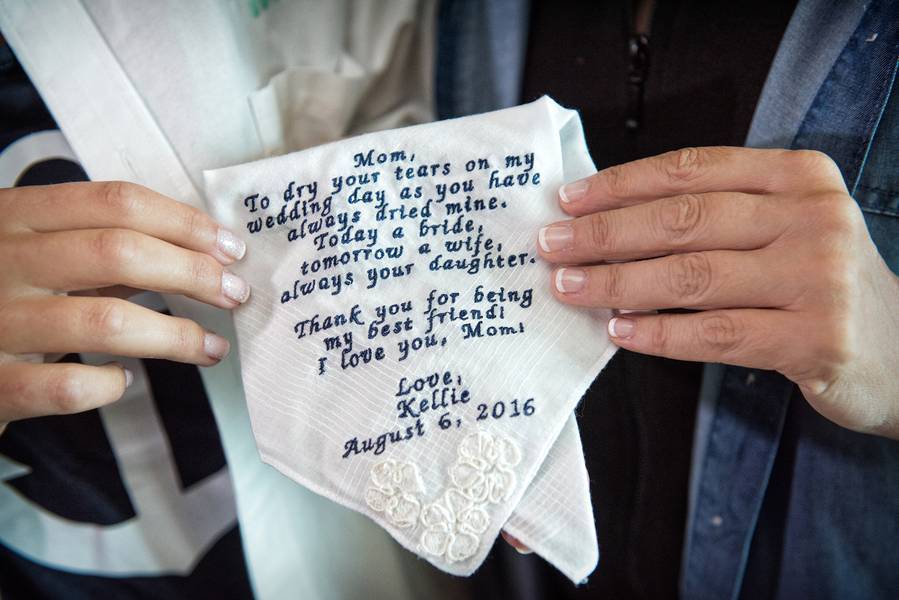 Mom,
To dry your tears on my
wedding day as you have
always dried mine.
Today a bride,
tomorrow a wife,
always your daughter.
Thank you for being
my best friend!
I love you, Mom!
Love,
Kellie
August 6, 2016